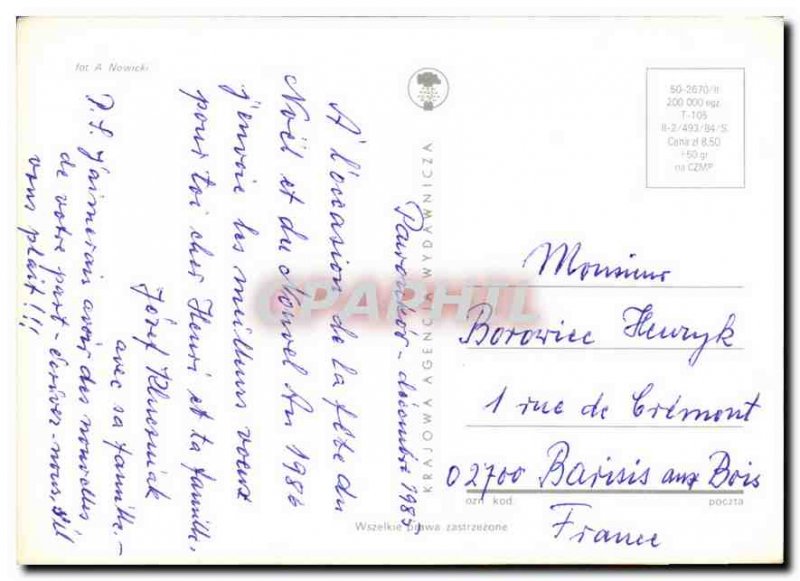 fot A. Nowicki
Parówkór - décembre 1985
A l'occasion de la fête du
Noël et du Nouvel An 1986
j'envoie les meilleurs voeux
pour toi cher Henri et ta famille.
Józef Klucsniak
avec sa famille. -
P.S. J'aimerais avoir des nouvelles
de votre part - écriver-nous, s'il
vous plaît!!!
KRAJOWA AGENCJA WYDAWNICZA
50-2670/II
200 000 egz.
T-105
II-2/493/84/S.
Cena zł 8,50
+50 gr
na CZMP
Monsieur
Borowiec Henryk
1 rue de Crémont
02700 Barisis aux Bois
ozn. kod. poczta
France
Wszelkie prawa zastrzeżone
CPAPHIL